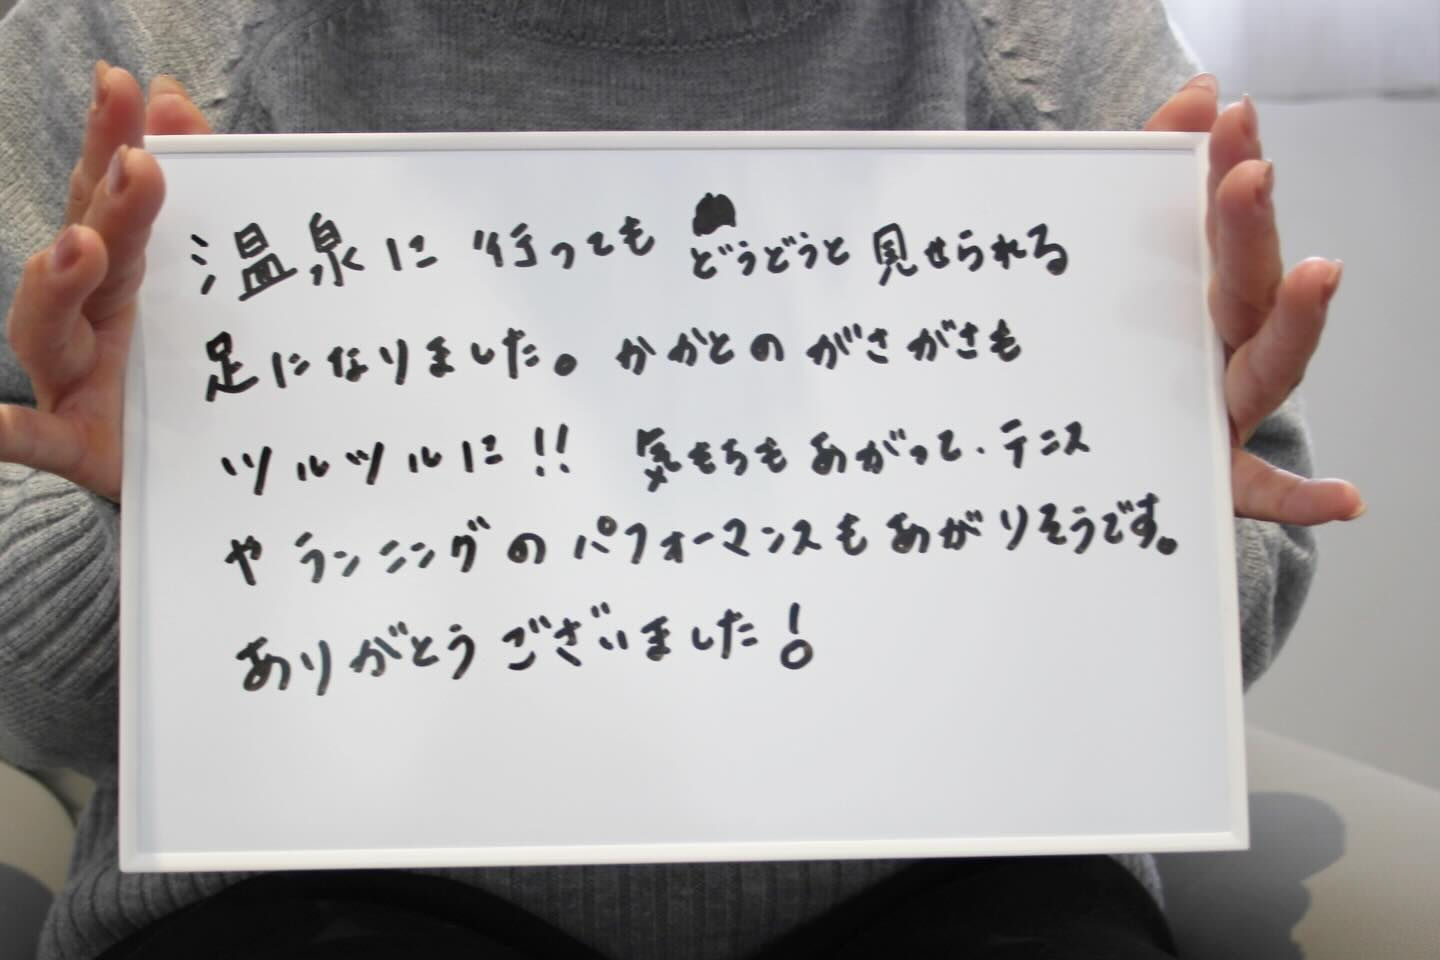 温泉に行っても どうどうと 見せられる
足になりました。かかとの がさがさも
ツルツルに!! 気もちも あがって、テニス
や ランニングの パフォーマンスも あがりそうです。
ありがとう ございました!